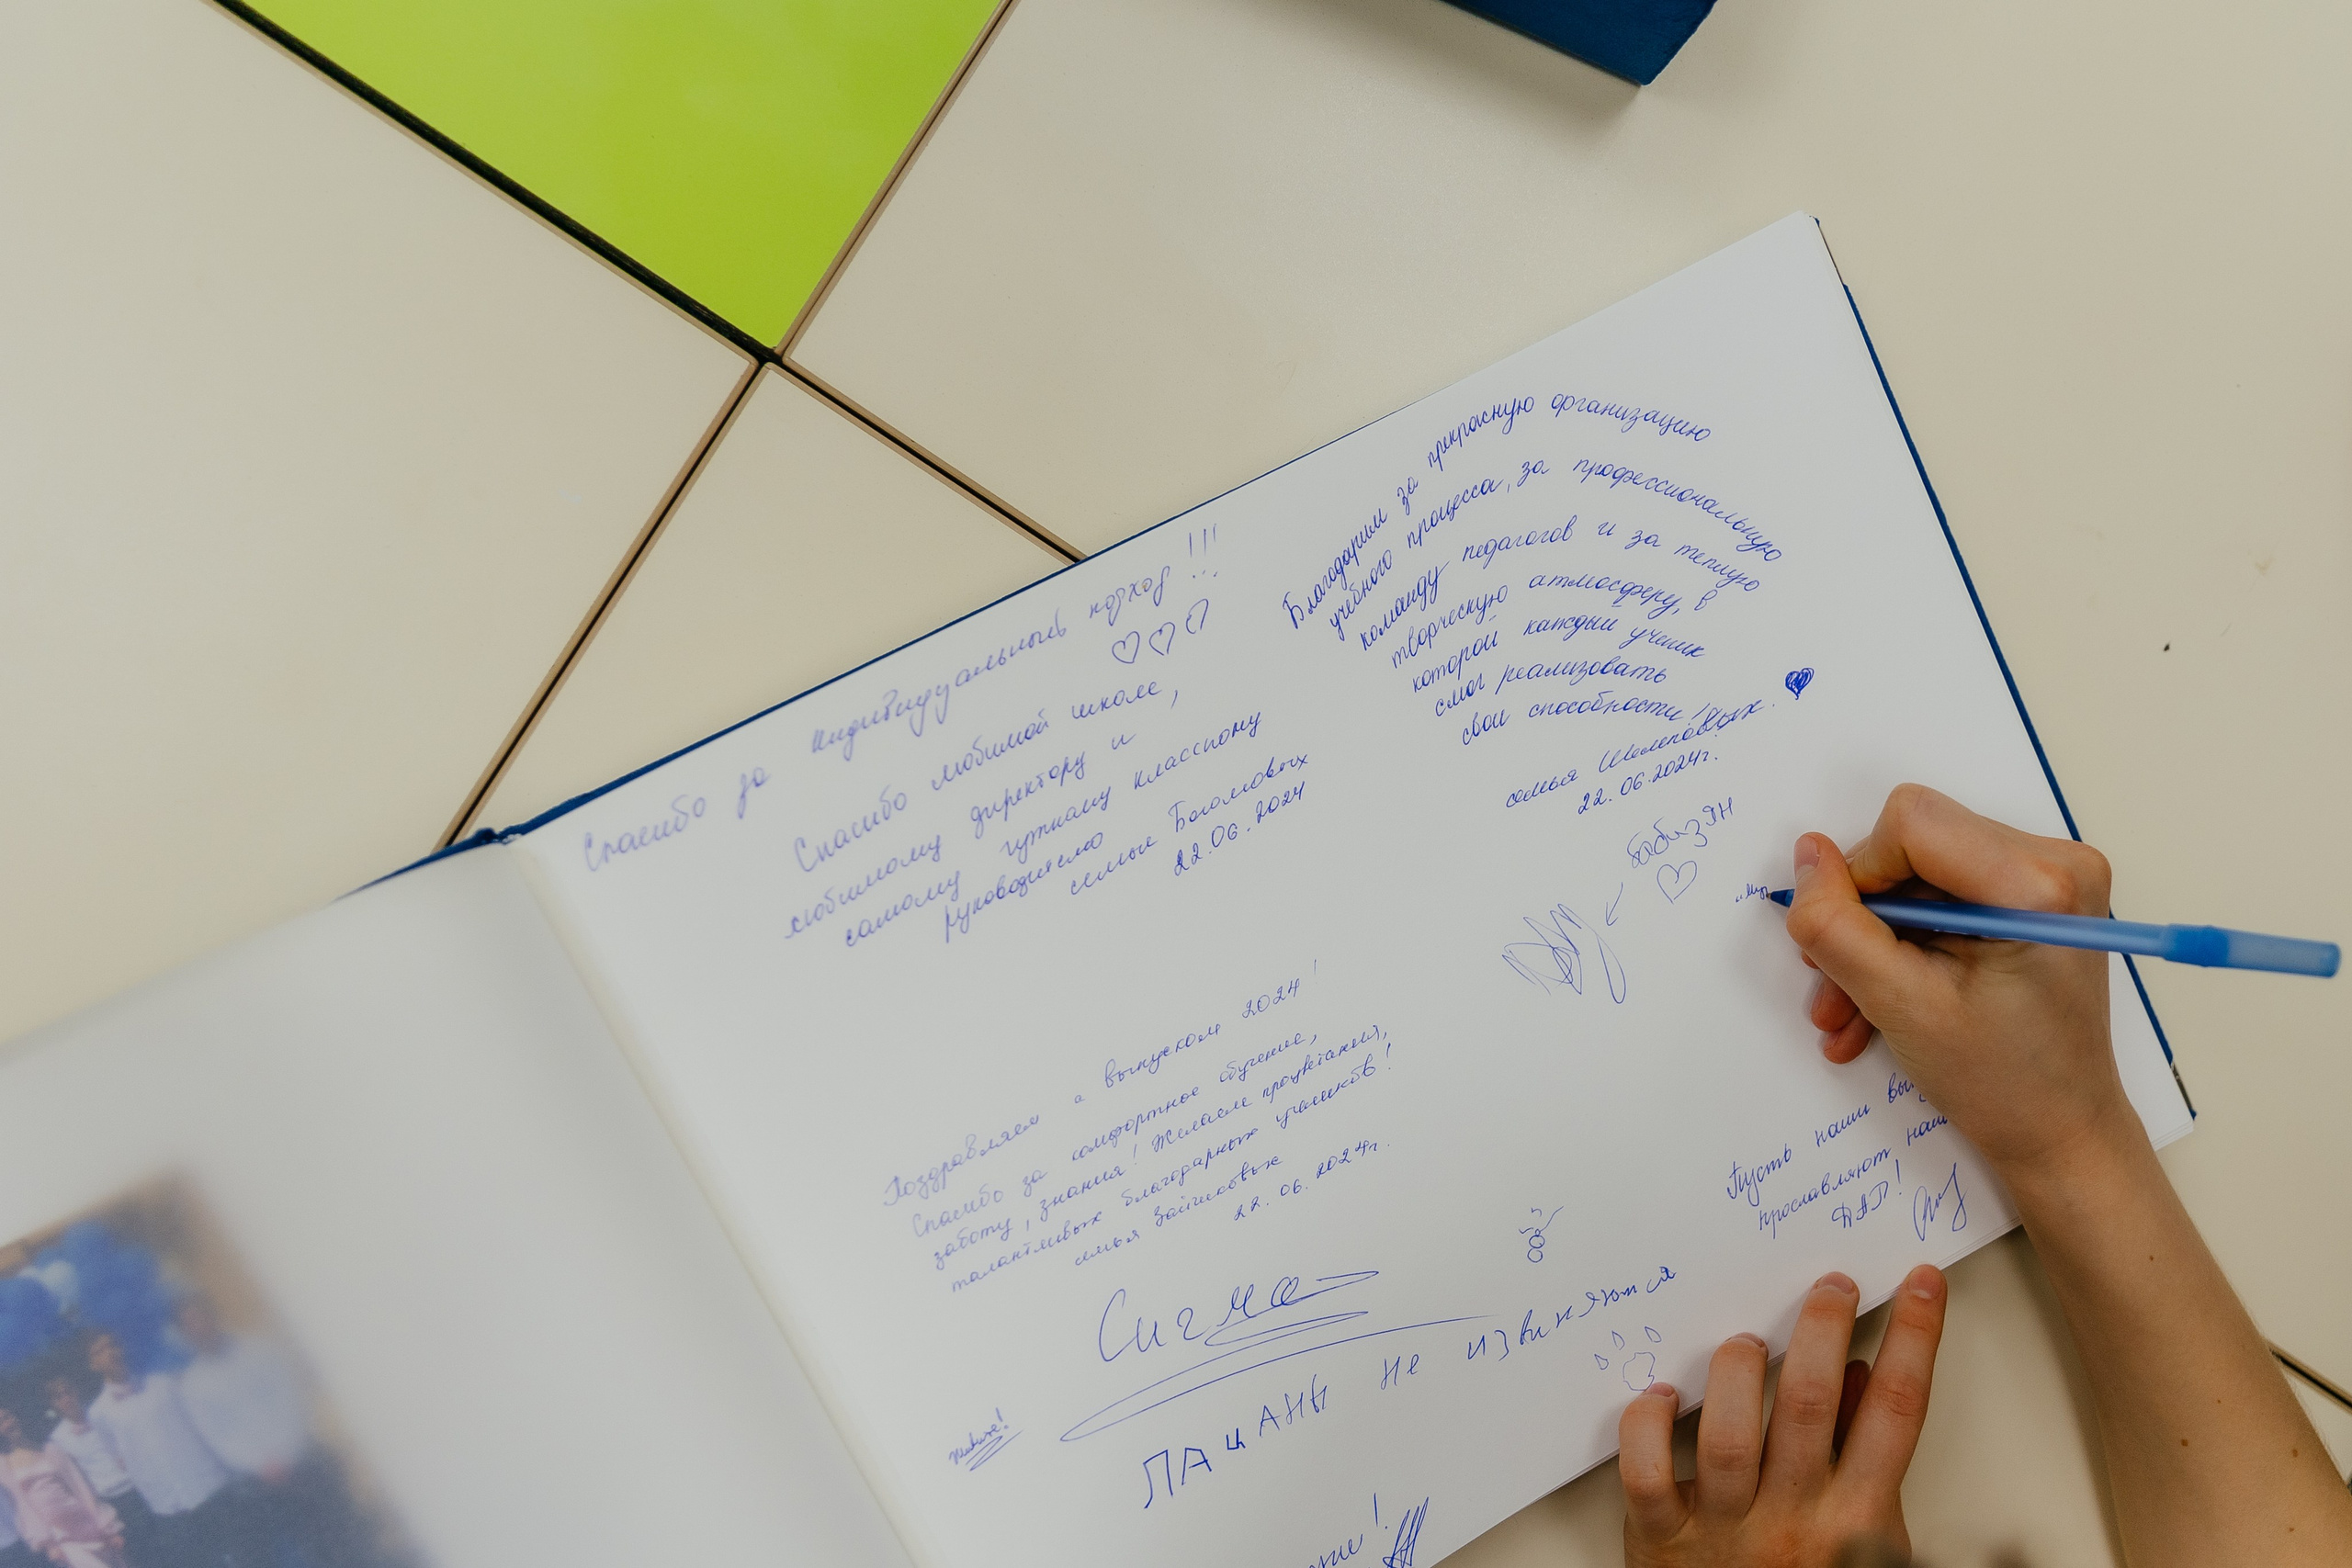 Спасибо за индивидуальный подход!!!
Спасибо любимой школе,
любимому директору и
самому чуткому классному
руководителю
семья Богомовых
22.06.2024
Поздравляем с выпускком 2024!
Спасибо за комфортное обучение,
заботу, знания! Желаем процветания,
талантливых благодарных учеников!
семья
22. 06. 2024г.
Сигма
живите!
ПАЦАНЫ Не извиняются
Благодарим за прекрасную организацию
учебного процесса, за профессиональную
команду педагогов и за теплую
творческую атмосферу, в
которой каждый ученик
смог реализовать
свои способности!
семья Шелеповых.
22. 06.2024г.
бабизян
Пусть наши вы
прославляют наш
ДАР!